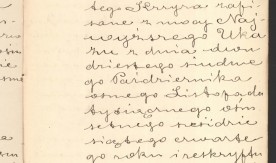 tego Skryra zapi
sane z mocy Naj
wyższego Uka
zu z dnia dwu
dziestego siódme
go Października
ósmego Listopada
tysiącznego ośm
setnego sześćdzie
siątego czwarte
go roku i reskryptu